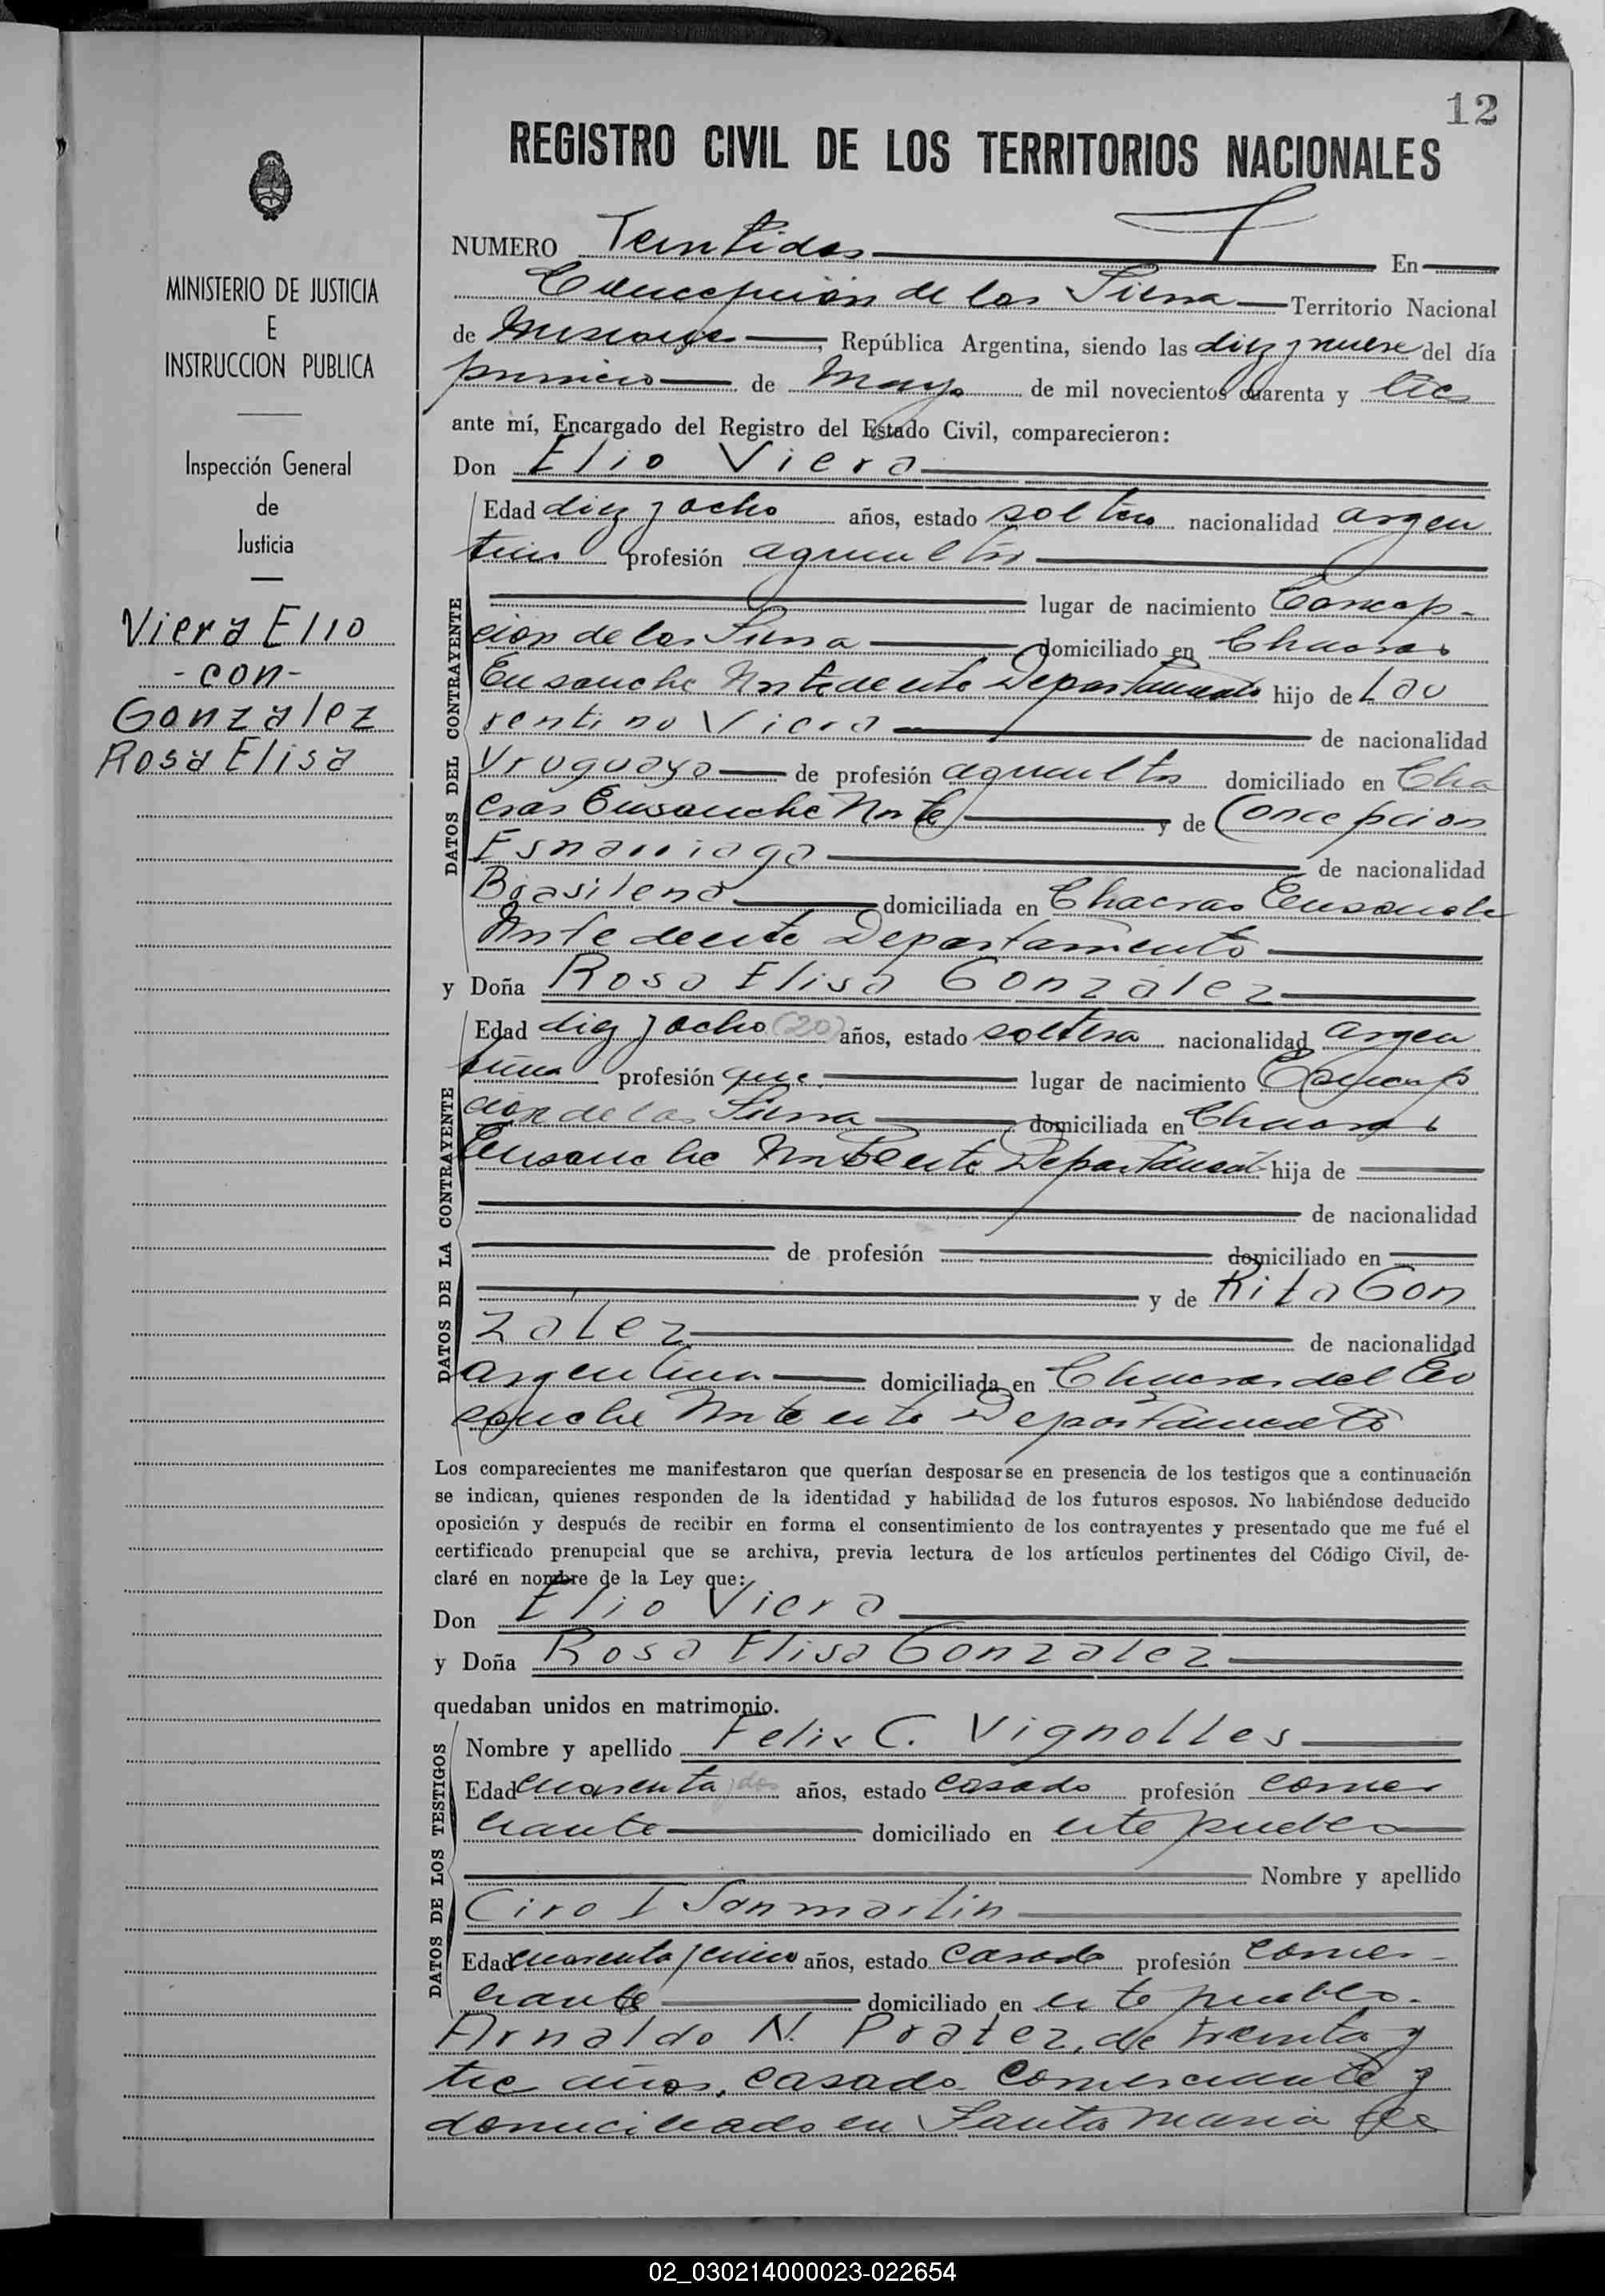 12
REGISTRO CIVIL DE LOS TERRITORIOS NACIONALES
MINISTERIO DE JUSTICIA
E
INSTRUCCION PUBLICA
Inspección General
de
Justicia
Viera Elio
- con -
Gonzalez
Rosa Elisa
NUMERO Veintidos En
Concepcion de la Sierra Territorio Nacional
de Misiones, República Argentina, siendo las diez y nueve del día
primero de Mayo de mil novecientos cuarenta y tres
ante mí, Encargado del Registro del Estado Civil, comparecieron:
Don Elio Viera
DATOS DEL CONTRAYENTE
Edad diez y ocho años, estado soltero nacionalidad argen
tino profesión agricultor
lugar de nacimiento Concep-
cion de la Sierra domiciliado en Chacras
Ensanche Norte de este Departamento hijo de Lau
rentino Viera de nacionalidad
Uruguaya de profesión agricultor domiciliado en Cha
cras Ensanche Norte y de Concepcion
Esnarriaga de nacionalidad
Brasilena domiciliada en Chacras Ensanche
Norte de este Departamento
y Doña Rosa Elisa Gonzalez
DATOS DE LA CONTRAYENTE
Edad diez y ocho (20) años, estado soltera nacionalidad argen
tina profesión lugar de nacimiento Concep
cion de la Sierra domiciliada en Chacras
Ensanche Norte este Departament hija de
de nacionalidad
de profesión domiciliado en
y de Rita Gon
zalez de nacionalidad
argentina domiciliada en Chacras del En
sanche Norte este Departamento
Los comparecientes me manifestaron que querían desposarse en presencia de los testigos que a continuación
se indican, quienes responden de la identidad y habilidad de los futuros esposos. No habiéndose deducido
oposición y después de recibir en forma el consentimiento de los contrayentes y presentado que me fué el
certificado prenupcial que se archiva, previa lectura de los artículos pertinentes del Código Civil, de-
claré en nombre de la Ley que:
Don Elio Viera
y Doña Rosa Elisa Gonzalez
quedaban unidos en matrimonio.
DATOS DE LOS TESTIGOS
Nombre y apellido Felix C. Vignolles
Edad cuarenta y dos años, estado casado profesión comer
ciante domiciliado en este pueblo
Nombre y apellido
Ciro I Sanmartin
Edad cuarenta y cinco años, estado casado profesión comer-
ciante domiciliado en este pueblo.
Arnaldo N. Prates, de treinta y
tre años, casado comerciante y
domiciliado en Santa Maria
02_030214000023-022654